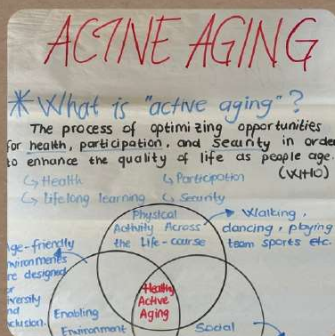 ACTIVE AGING
* What is "active aging"?
The process of optimizing opportunities
for health, participation, and security in order
to enhance the quality of life as people age.
(WHO)
↳ Health ↳ Participation
↳ Lifelong learning ↳ Security
Physical
Activity Across
the Life-course
→ Walking,
dancing, playing
team sports etc.
age-friendly
environments
are designed
for
diversity
and
inclusion.
Healthy
Active
Aging
Enabling
Environment
Social